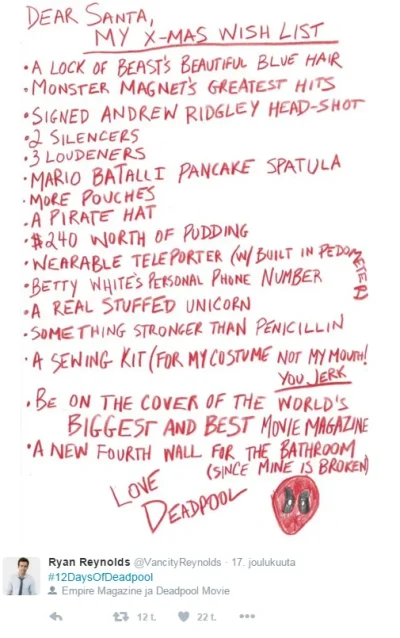 DEAR SANTA,
MY X-MAS WISH LIST
• A LOCK OF BEAST'S BEAUTIFUL BLUE HAIR
• MONSTER MAGNET'S GREATEST HITS
• SIGNED ANDREW RIDGLEY HEAD-SHOT
• 2 SILENCERS
• 3 LOUDENERS
• MARIO BATALLI PANCAKE SPATULA
• MORE POUCHES
• A PIRATE HAT
• $240 WORTH OF PUDDING
• WEARABLE TELEPORTER (W/ BUILT IN PEDOMETER)
• BETTY WHITE'S PERSONAL PHONE NUMBER
• A REAL STUFFED UNICORN
• SOMETHING STRONGER THAN PENICILLIN
• A SEWING KIT (FOR MY COSTUME NOT MY MOUTH!
YOU JERK
• BE ON THE COVER OF THE WORLD'S
BIGGEST AND BEST MOVIE MAGAZINE
• A NEW FOURTH WALL FOR THE BATHROOM
(SINCE MINE IS BROKEN)
LOVE
DEADPOOL
Ryan Reynolds @VancityReynolds · 17. joulukuuta
#12DaysOfDeadpool
Empire Magazine ja Deadpool Movie
12 t. 22 t.